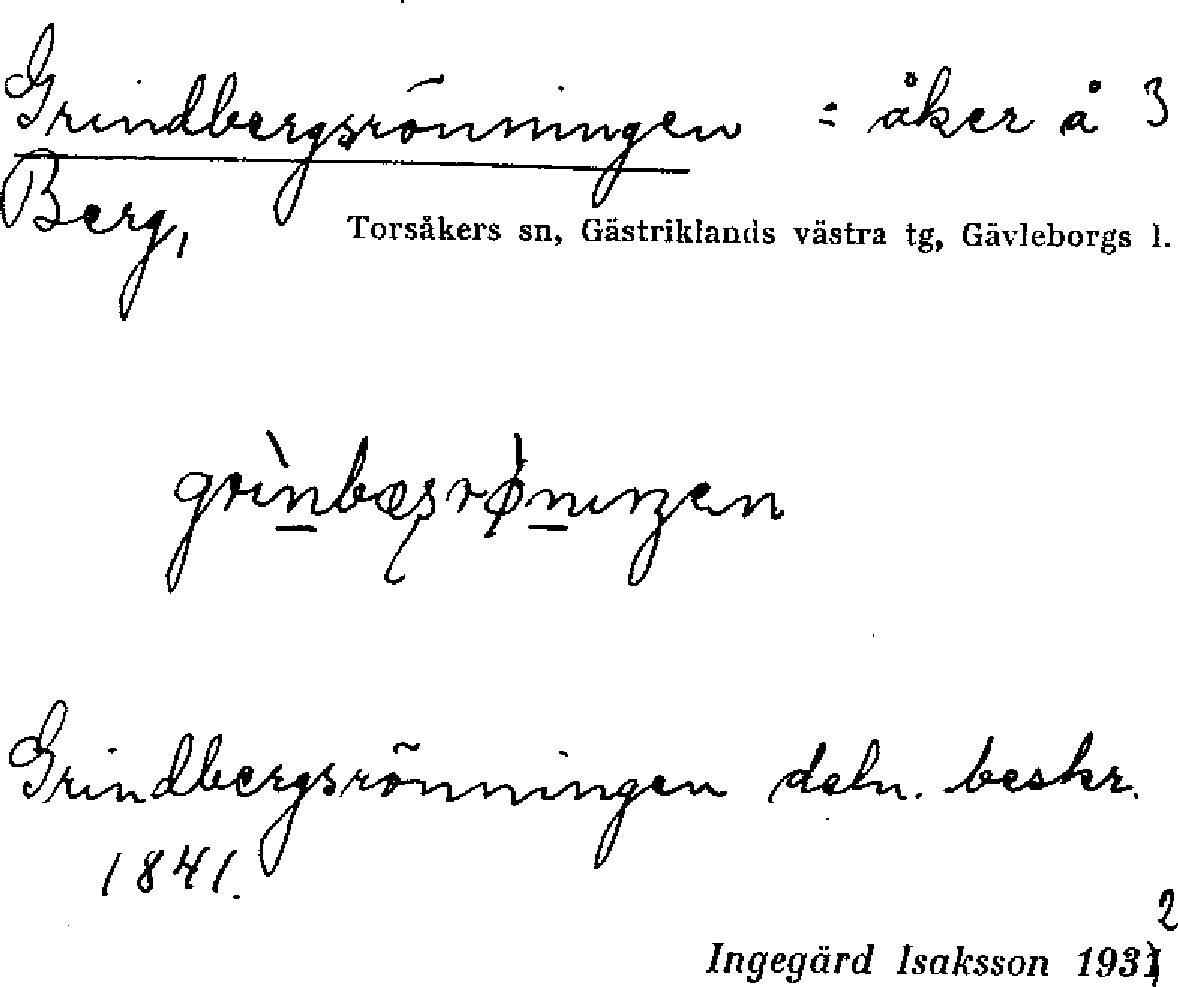 Grindbergsrönningen = åker å 3
Berg,
Torsåkers sn, Gästriklands västra tg, Gävleborgs l.
grìn̲bæşrǿn̲ıŋen
Grindbergsrönningen deln. beskr.
1841.
Ingegärd Isaksson 1932